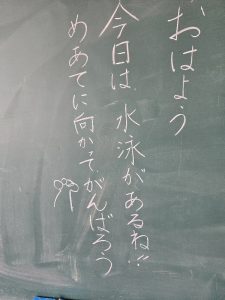 おはよう
今日は、水泳があるね!!
めあてに向かてがんばろう